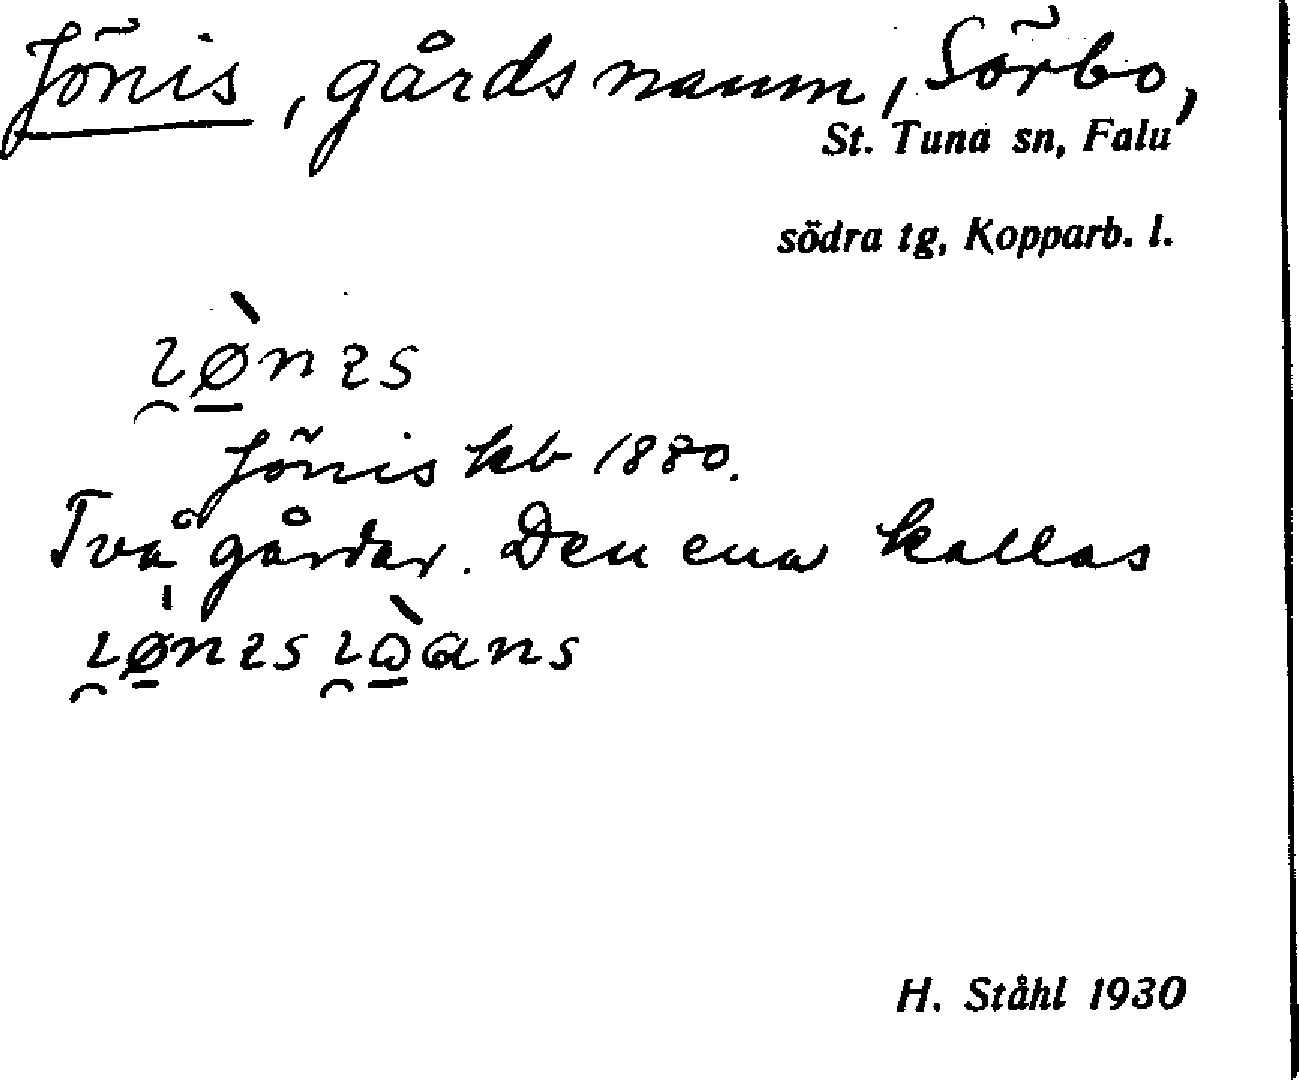 Jönis, gårdsnamn, Sörbo,
St. Tuna sn, Falu
södra tg, Kopparb. l.
Jönis kb 1880.
Två gårdar. Den ena kallas
H. Ståhl 1930